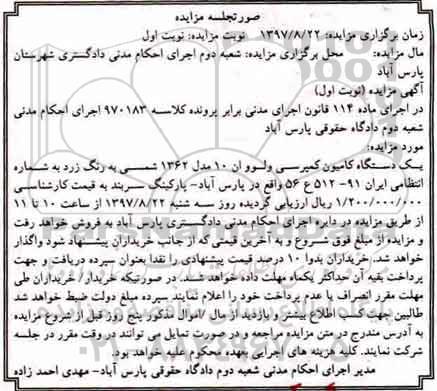 صورتجلسه مزایده
زمان برگزاری مزایده: ۱۳۹۷/۸/۲۲ نوبت مزایده: نوبت اول
مال مزایده: محل برگزاری مزایده: شعبه دوم اجرای احکام مدنی دادگستری شهرستان
پارس آباد
آگهی مزایده (نوبت اول)
در اجرای ماده ۱۱۴ قانون اجرای مدنی برابر پرونده کلاسه ۹۷۰۱۸۳ اجرای احکام مدنی
شعبه دوم دادگاه حقوقی پارس آباد
مورد مزایده:
یک دستگاه کامیون کمپرسی ولوو ان ۱۰ مدل ۱۳۶۲ شمسی به رنگ زرد به شماره
انتظامی ایران ۹۱- ۵۱۲ ع ۵۶ واقع در پارس آباد- پارکینگ سربند به قیمت کارشناسی
۱/۲۰۰/۰۰۰/۰۰۰ ریال ارزیابی گردیده روز سه شنبه ۱۳۹۷/۸/۲۲ از ساعت ۱۰ تا ۱۱
از طریق مزایده در دایره اجرای احکام مدنی دادگستری پارس آباد به فروش خواهد رفت
و مزایده از مبلغ فوق شروع و به آخرین قیمتی که از جانب خریداران پیشنهاد شود واگذار
خواهد شد. خریداران بدوا ۱۰ درصد قیمت پیشنهادی را نقدا بعنوان سپرده دریافت و جهت
پرداخت بقیه آن حداکثر یکماه مهلت داده خواهند شد. در صورتیکه خریدار/ خریداران طی
مهلت مقرر انصراف یا عدم پرداخت خود را اعلام نمایند سپرده مبلغ دولت ضبط خواهد شد
طالبین جهت کسب اطلاع بیشتر و بازدید از مال /اموال مذکور پنج روز قبل از شروع مزایده
به آدرس مندرج در متن مزایده مراجعه و در صورت تمایل می توانند در وقت مقرر در جلسه
شرکت نمایند. کلیه هزینه های اجرایی بعهده محکوم علیه خواهد بود.
مدیر اجرای احکام مدنی شعبه دوم دادگاه حقوقی پارس آباد- مهدی احمد زاده